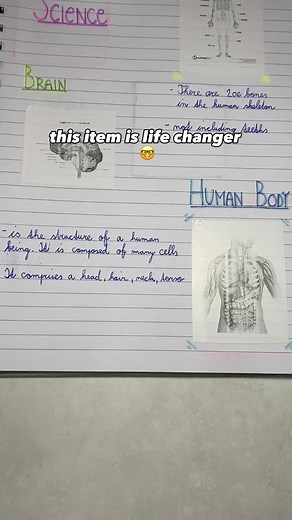 SCIENCE
BRAIN
- There are 206 bones
in the human skeleton
- not including teeths
this item is life changer
🤓
HUMAN BODY
- is the structure of a human
being. It is composed of many cells
It comprises a head, hair, neck, torso